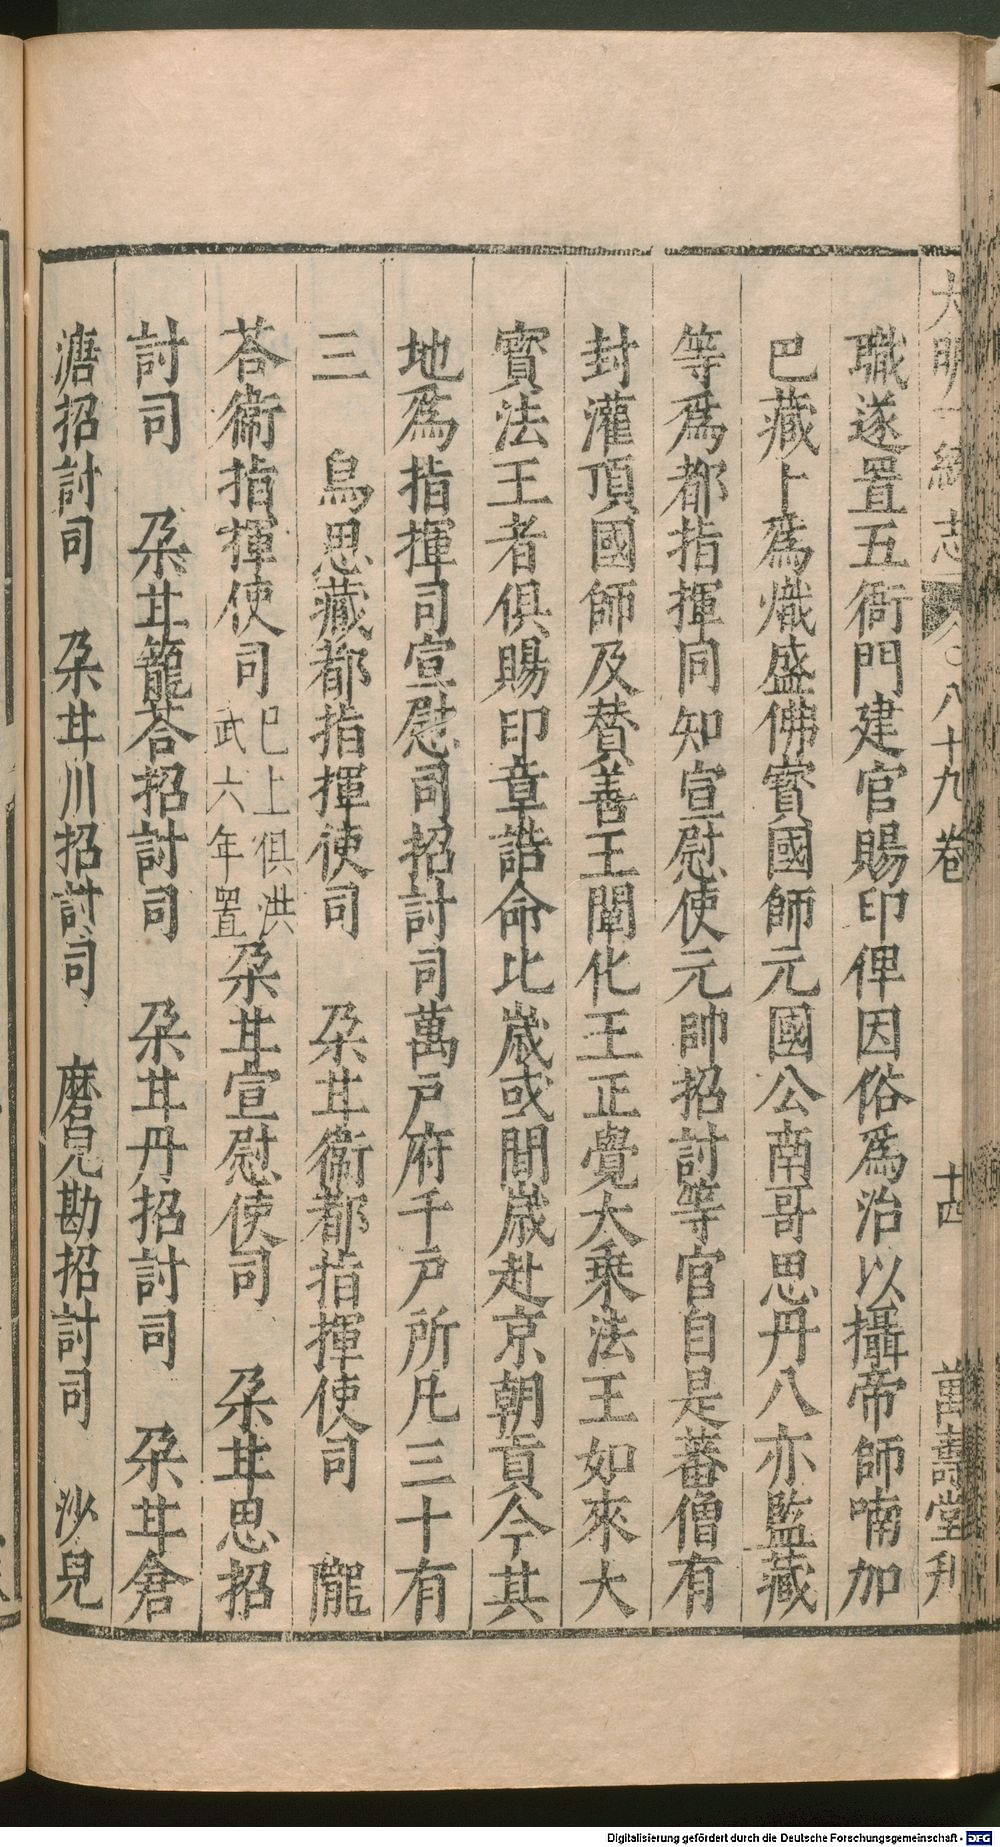 大明一統志 八十九卷 十四 萬壽堂刋
職遂置五衙門建官賜印俾因俗爲治以攝帝師喃加
巴藏卜爲熾盛佛寳國師元國公南哥思丹八亦監藏
等爲都指揮同知宣慰使元帥招討等官自是蕃僧有
封灌頂國師及賛善王闡化王正覺大乗法王如來大
寳法王者俱賜印章誥命比歲或間歲赴京朝貢今其
地爲指揮司宣慰司招討司萬戸府千戸所凡三十有
三 烏思藏都指揮使司 朶甘衞都指揮使司 隴
荅衞指揮使司 巳上俱洪
武六年置 朶甘宣慰使司 朶甘思招
討司 朶甘籠荅招討司 朶甘丹招討司 朶甘倉
溏招討司 朶甘川招討司 磨兒勘招討司 沙兒
Digitalisierung gefördert durch die Deutsche Forschungsgemeinschaft - DFG